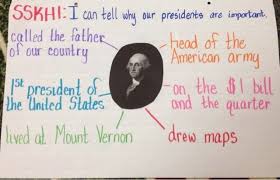 SSKH1: I can tell why our presidents are important.
called the father
of our country
head of the
American army
1st president of
the United States
on the $1 bill
and the quarter
lived at Mount Vernon
drew maps